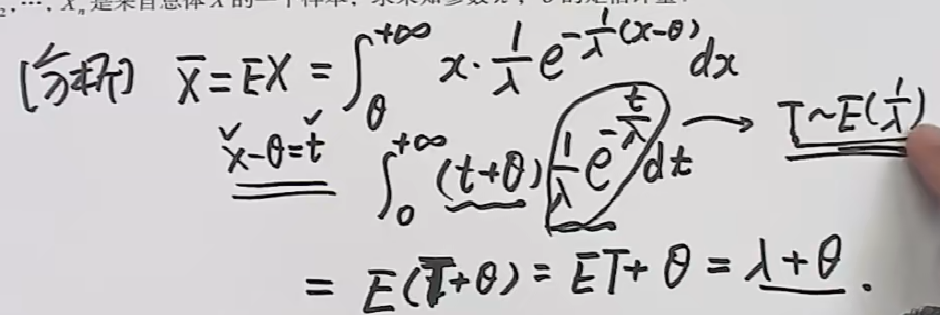 2,…,Xₙ是来自总体X的一个样本,求未知参数λ,θ的矩估计量.
[分析] X̄=EX=∫_θ^{+∞} x·1/λ e^{-1/λ(x-θ)}dx
x-θ=t ∫_0^{+∞} (t+θ) 1/λ e^{-t/λ} dt → T~E(1/λ)
= E(T+θ)=ET+θ=λ+θ.